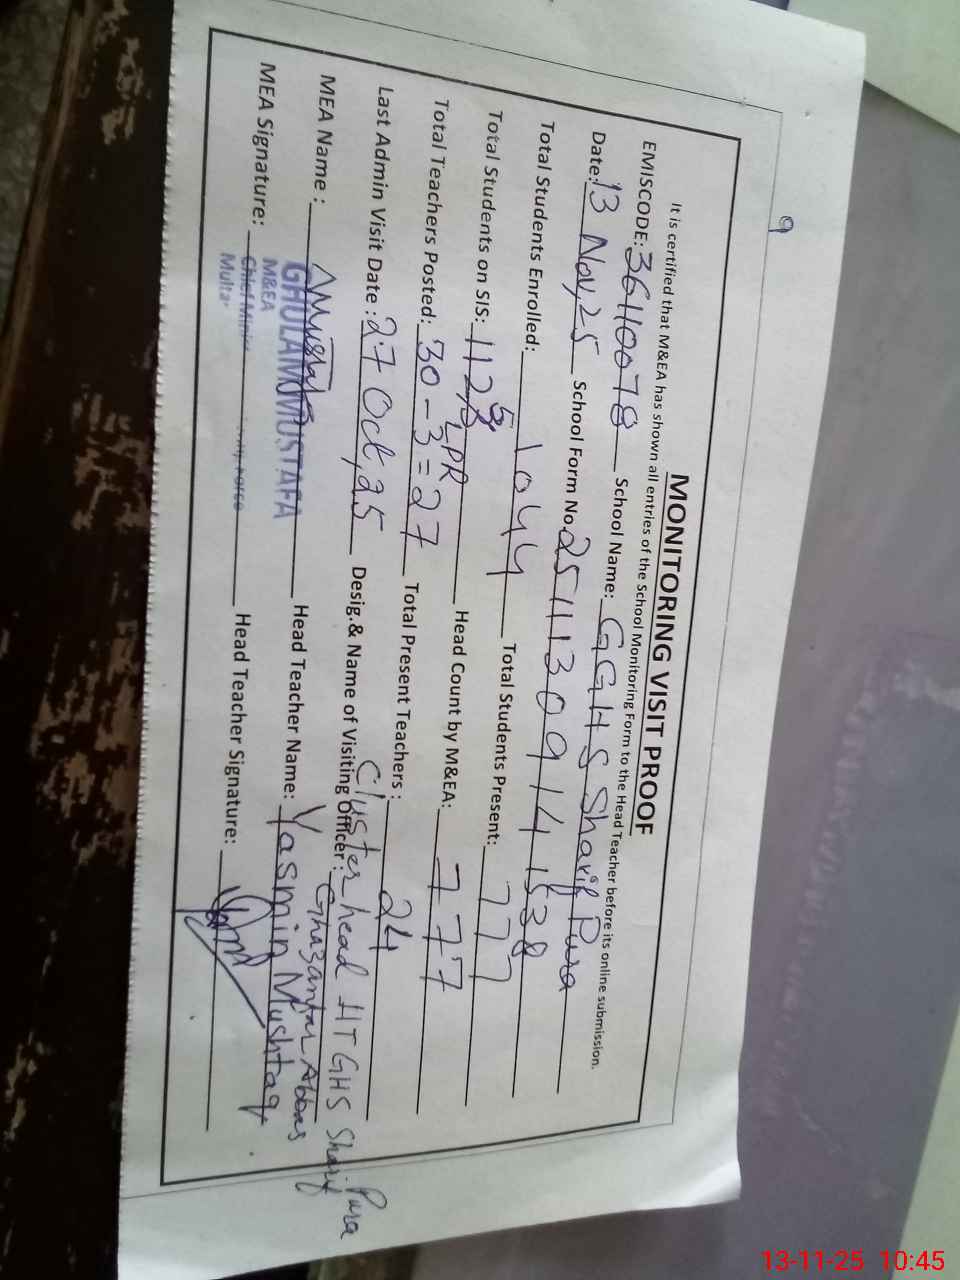 9
MONITORING VISIT PROOF
It is certified that M&EA has shown all entries of the School Monitoring Form to the Head Teacher before its online submission.
EMISCODE: 36110078 School Name: GGHS Sharif Pura
Date: 13 Nov,25 School Form No 25111309141538
Total Students Enrolled: 1044 Total Students Present: 777
Total Students on SIS: 1125 Head Count by M&EA: 777
LPR
Total Teachers Posted: 30-3=27 Total Present Teachers: 24
Cluster head HT GHS Sharif Pura
Last Admin Visit Date: 27 Oct,25 Desig.& Name of Visiting Officer: Ghazanfar Abbas
MEA Name: Head Teacher Name: Yasmin Mushtaq
GHULAM MUSTAFA
MEA Signature: Head Teacher Signature:
M&EA
Chief Minister
Multan
13-11-25 10:45